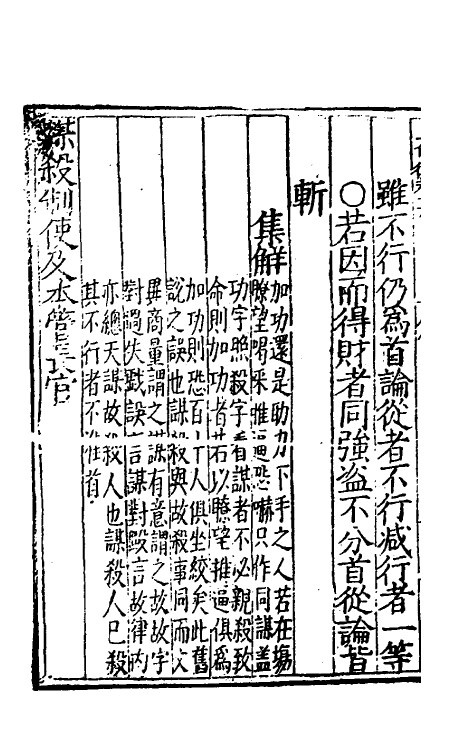 雖不行仍為首論從者不行减行者一等
○若因而得財者同強盜不分首從論皆
斬
集解加功還是助力下手之人若在塲
瞭望喝采推逼恐嚇只作同謀盖
功字照殺字看謀者不必親殺致
命則加功者若以瞭望推逼俱為
加功則恐百十人俱坐絞矣此舊
說之誤也謀殺與故殺事同而
畢商量謂之謀有意謂之故故字
對過失戲誤言謀對毆言故律內
亦總天謀故殺人也謀殺人巳殺
其不行者不准首
謀殺制使及本管長官